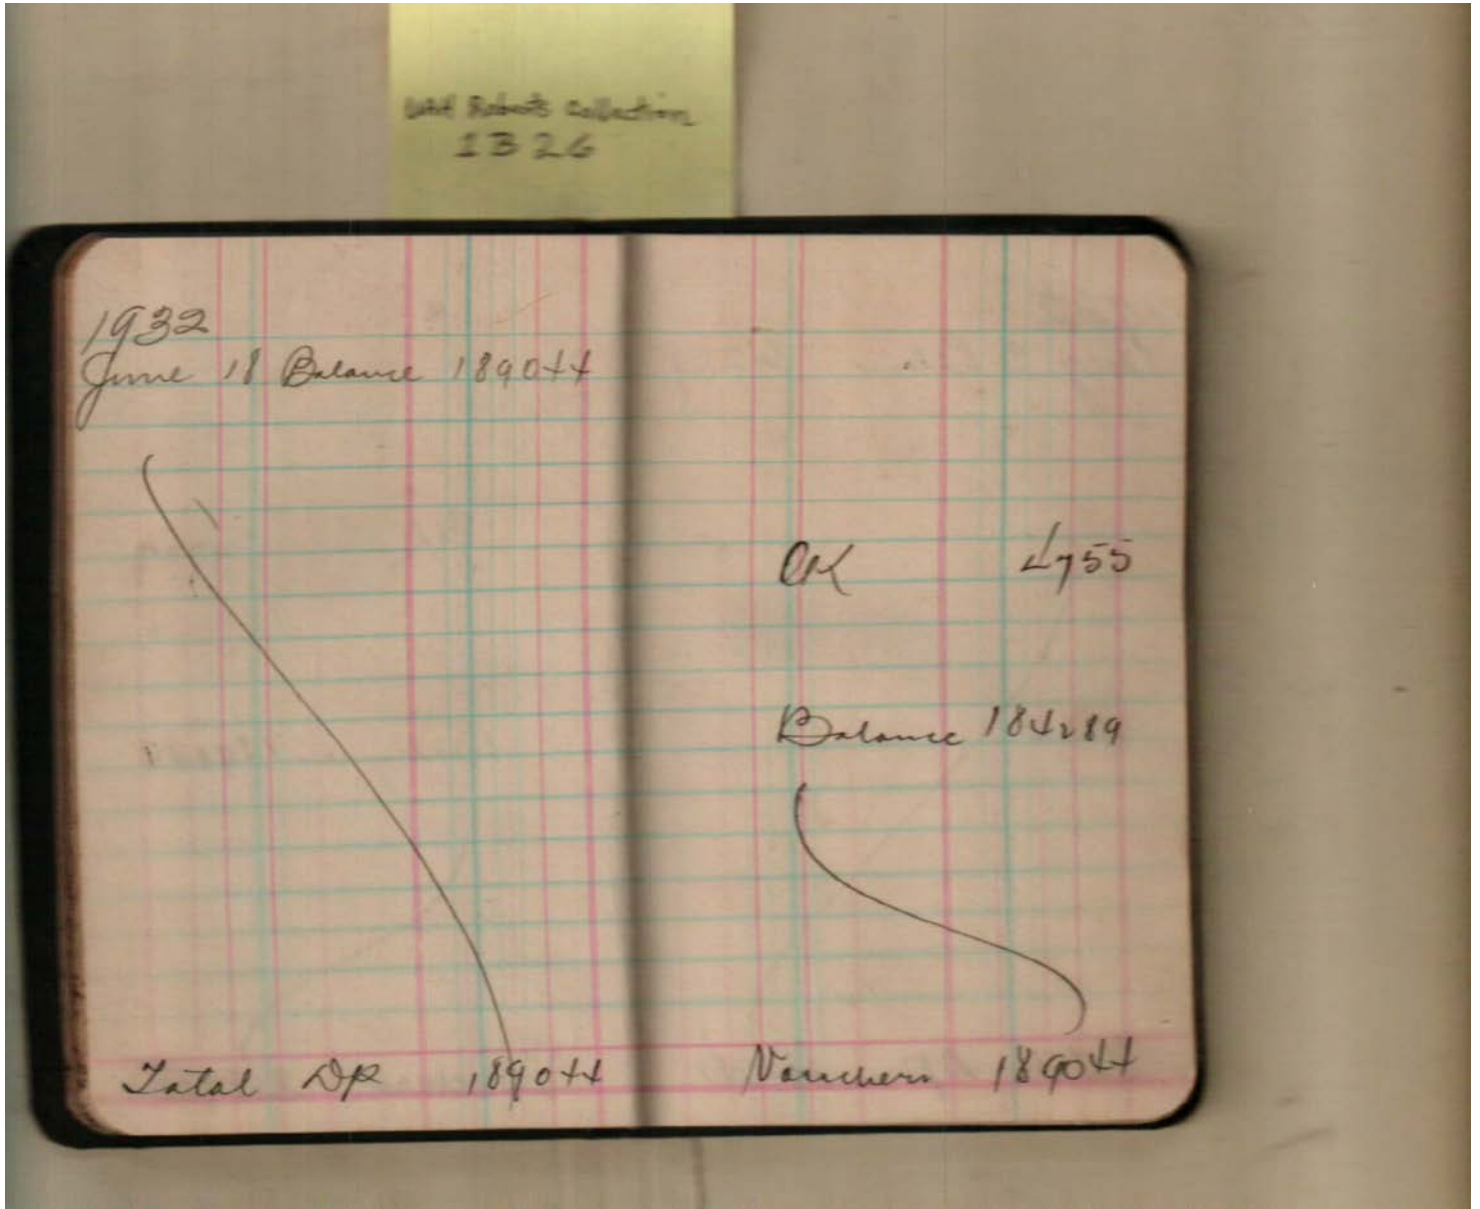 UAH Roberts Collection
1B26
1932
June 18 Balance 189044
Total Dr 189044
CK 4755
Balance 184289
Vouchers 189044